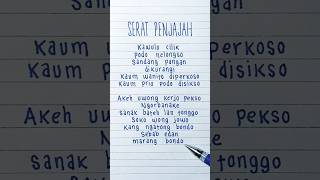 SERAT PENJAJAH
Kawulo cilik
podo nelongso
Sandang pangan
dikurangi
Kaum wanito diperkoso
Kaum Prio podo disikso
Akeh uwong kerjo pekso
Ngorbanake
sanak bateh lan tonggo
Soko wong jowo
Kang ngatong bondo
Sebab edan
marang bondo